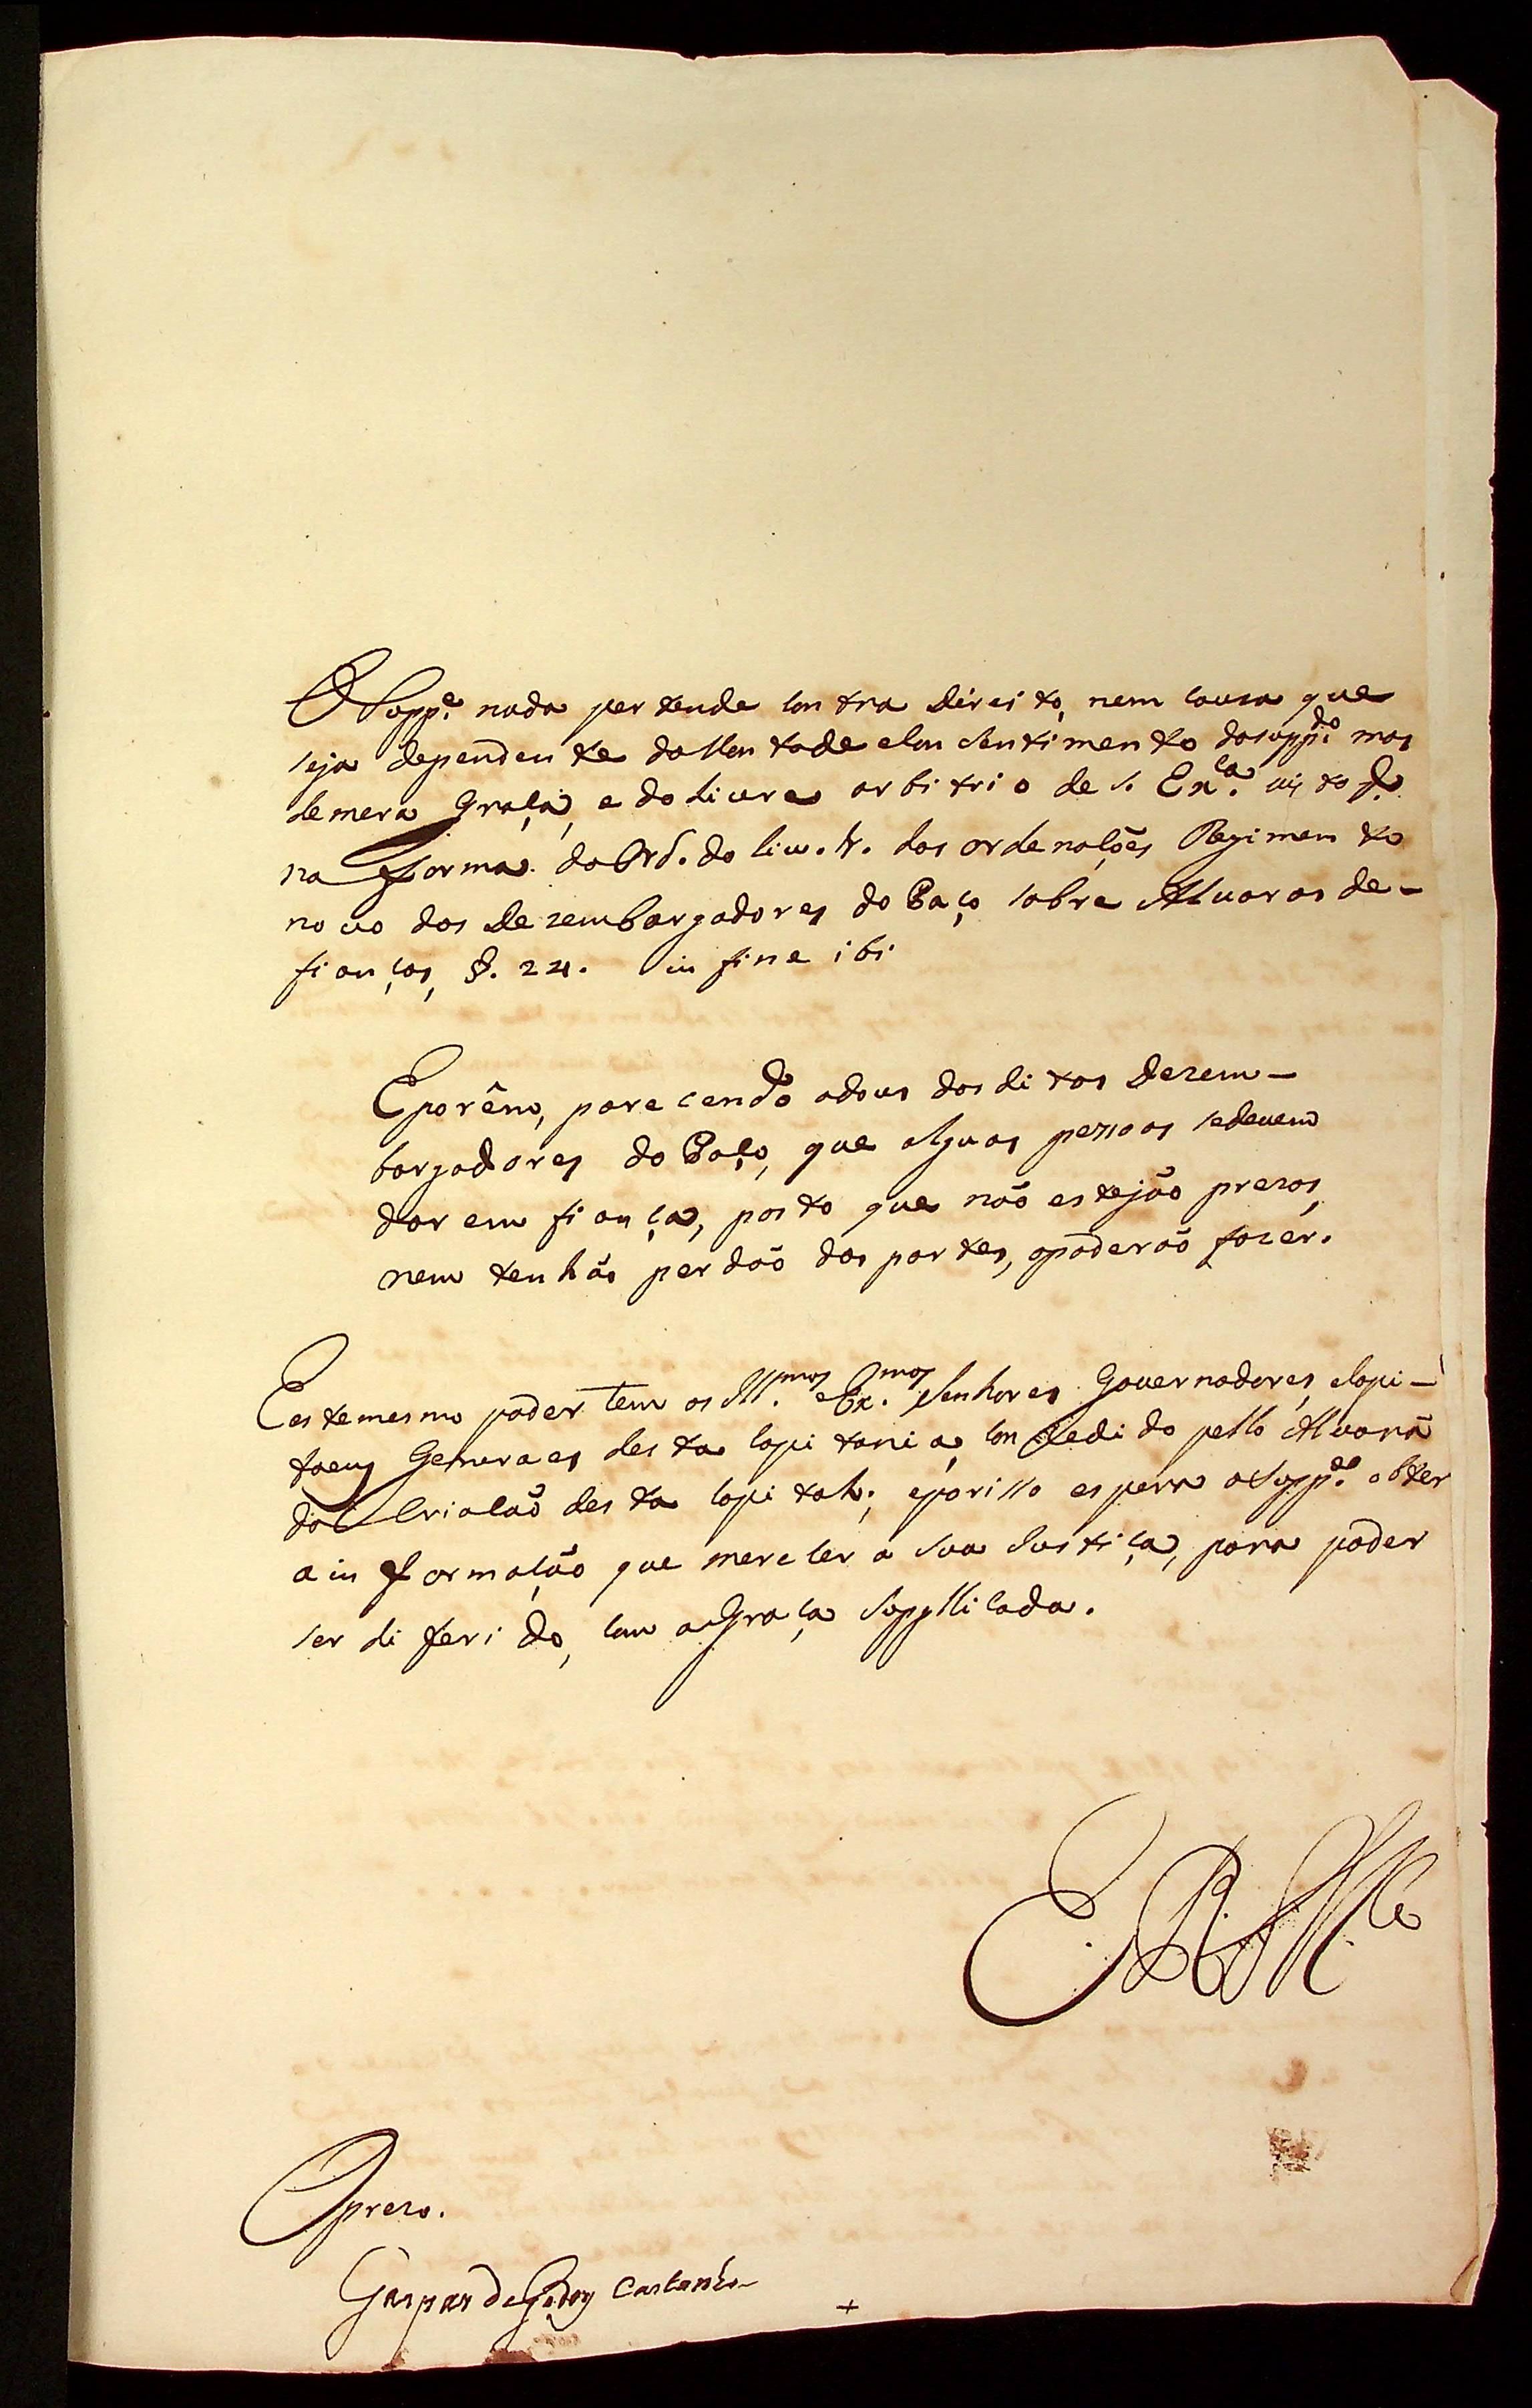 O Supp.e nada pertende contra direito, nem cousa que
seja dependente da Vontade e consentimento do supp.do mas
de mera Graça, e do livre arbitrio de S. Ex.ca visto q.
na forma da Ord. do liv. 1. das ordenações Regimento
novo dos Dezembargadores do Paço sobre Alvaras de-
fianças, §. 24. in fine ibi
E porêm, parecendo a dous dos ditos Dezem-
bargadores do Paço, que alguas pessoas se devem
dar em fiança, posto que não estejão prezos,
nem tenhão perdão das partes, o poderão fazer.
E este mesmo poder tem os Ill.mos e Ex.mos Senhores Governadores, e Capi-
taens Generaes desta Capitania, concedido pello Alvará
da Criação desta Capitania; e por isso espera o Supp.e obter
a informação que merecer a sua Justiça, para poder
ser diferido, com a Graça Suppllicada.
E. R. M.ce
O prezo.
Gaspar de Godoy Castanho